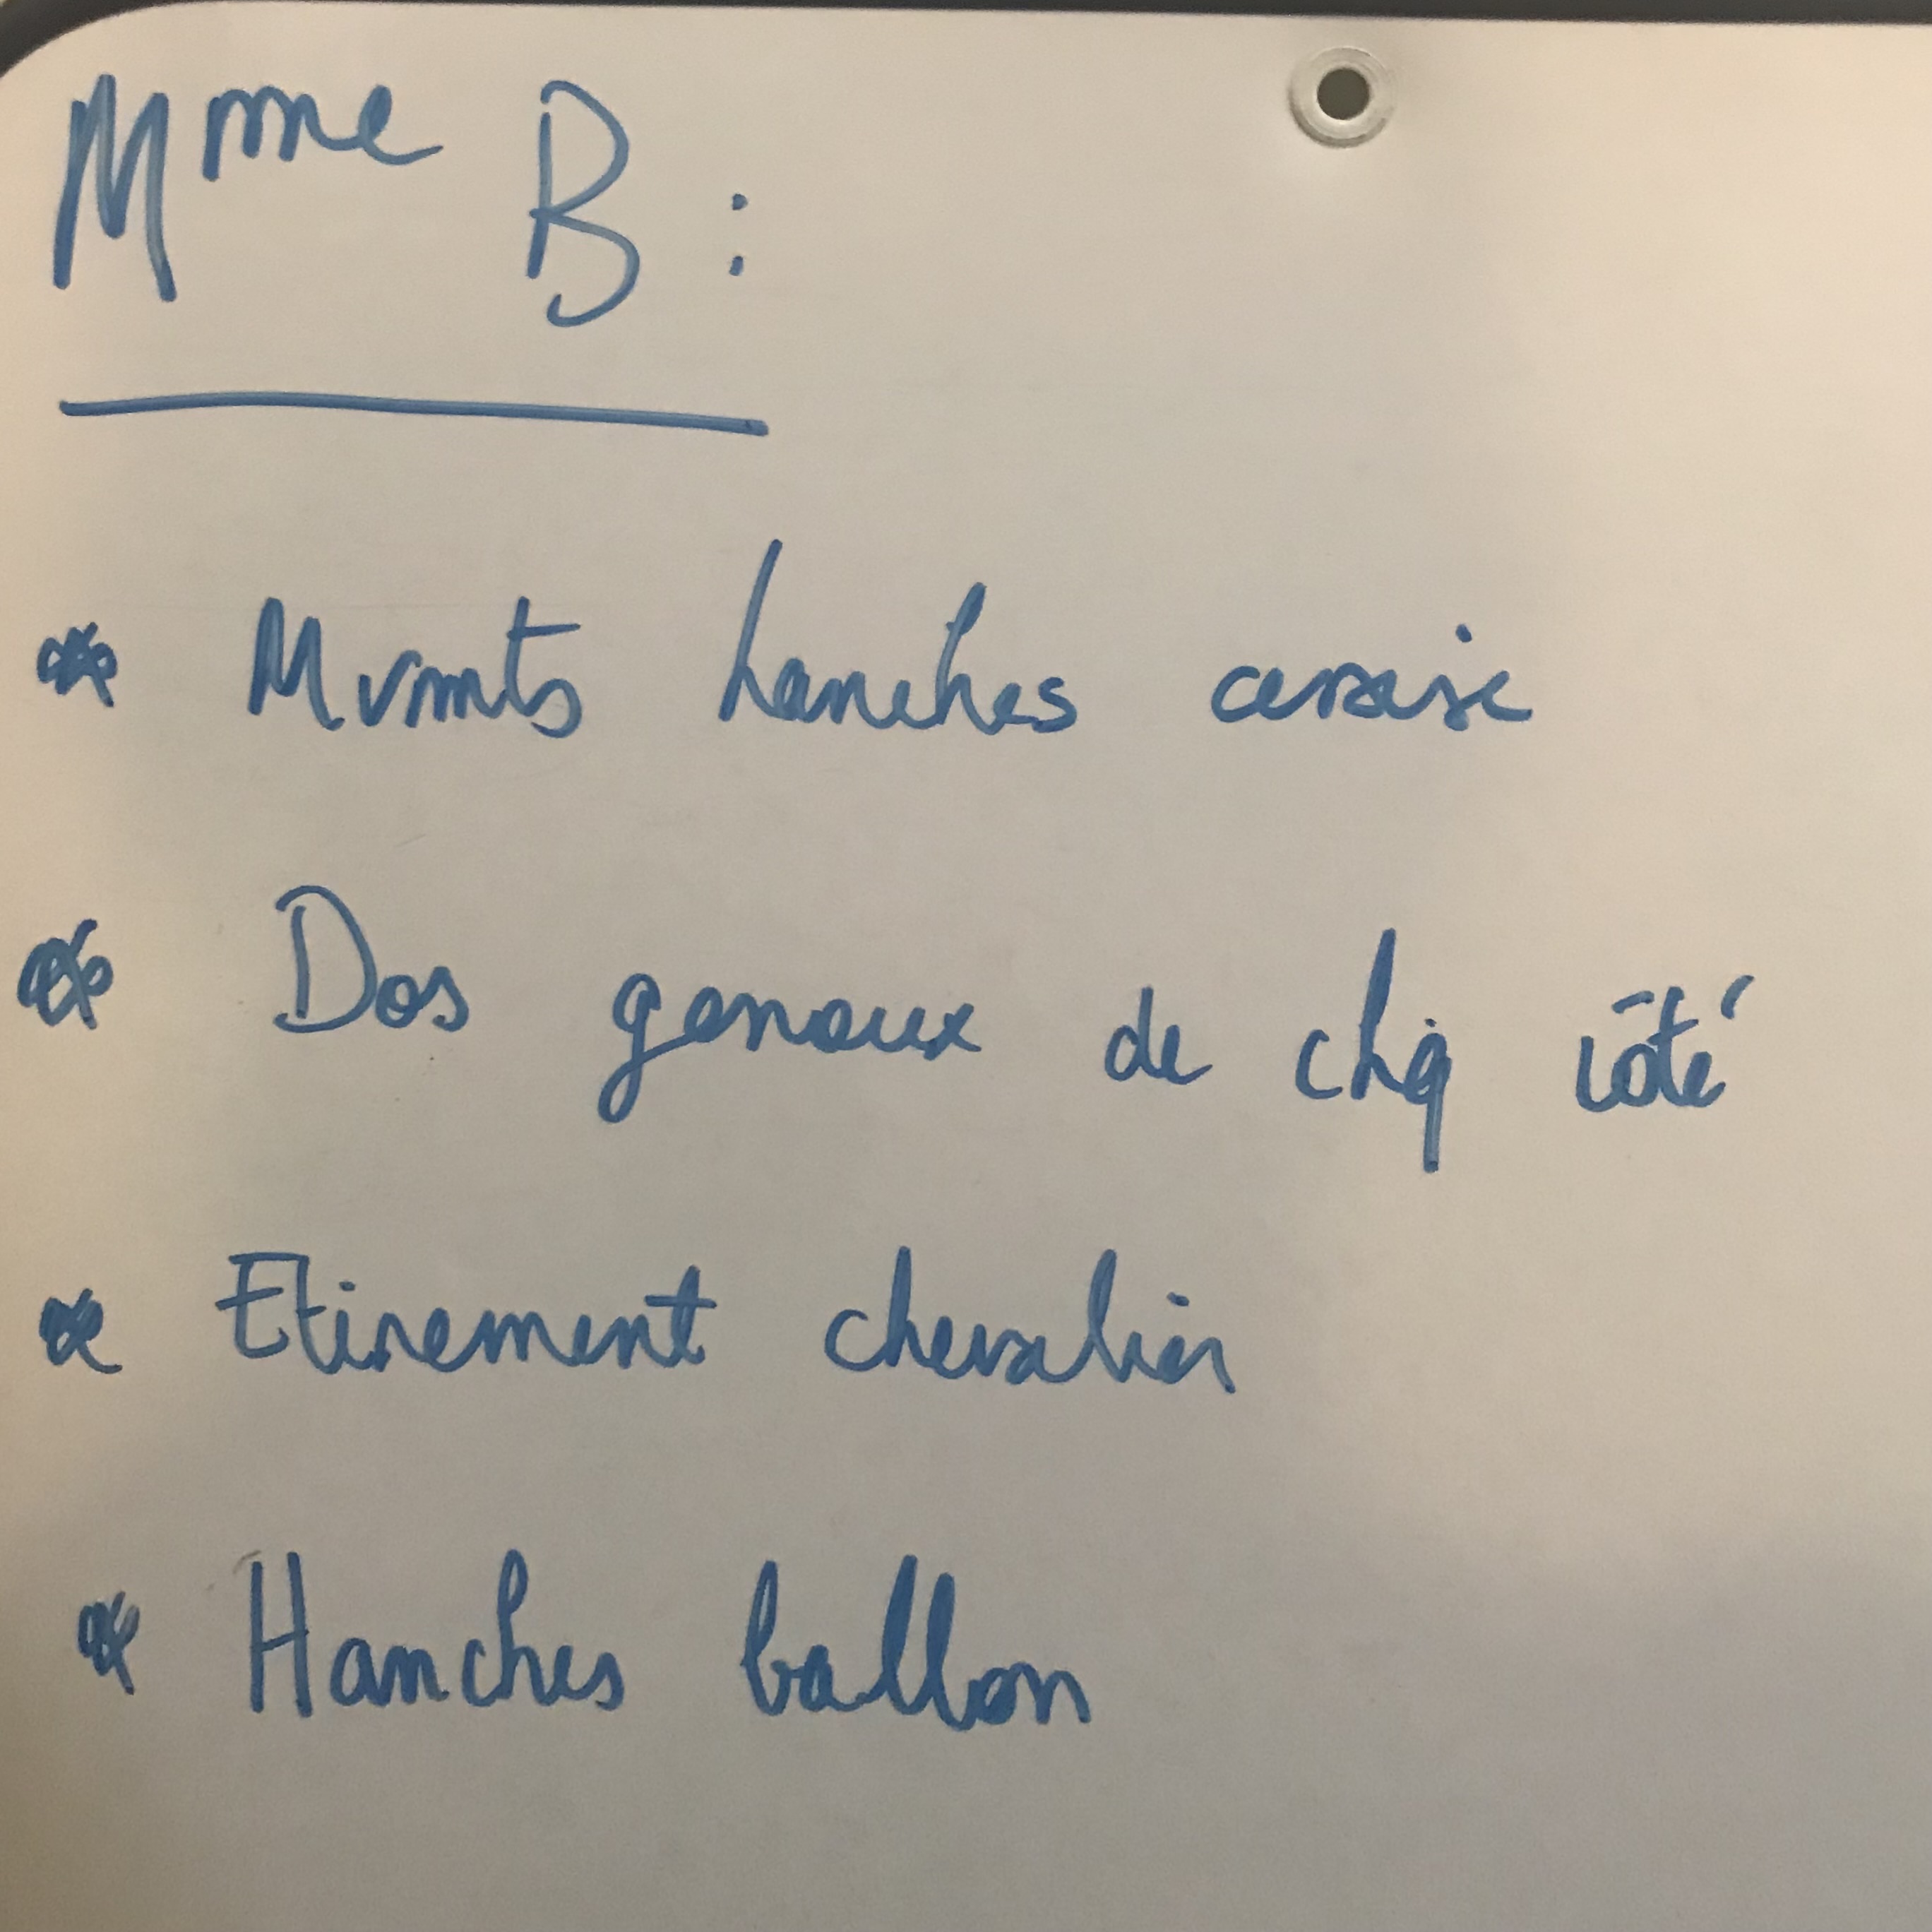 Mme B :
* Mvmts hanches cerise
* Dos genoux de chq côté
* Etirement chevalier
* Hanches ballon